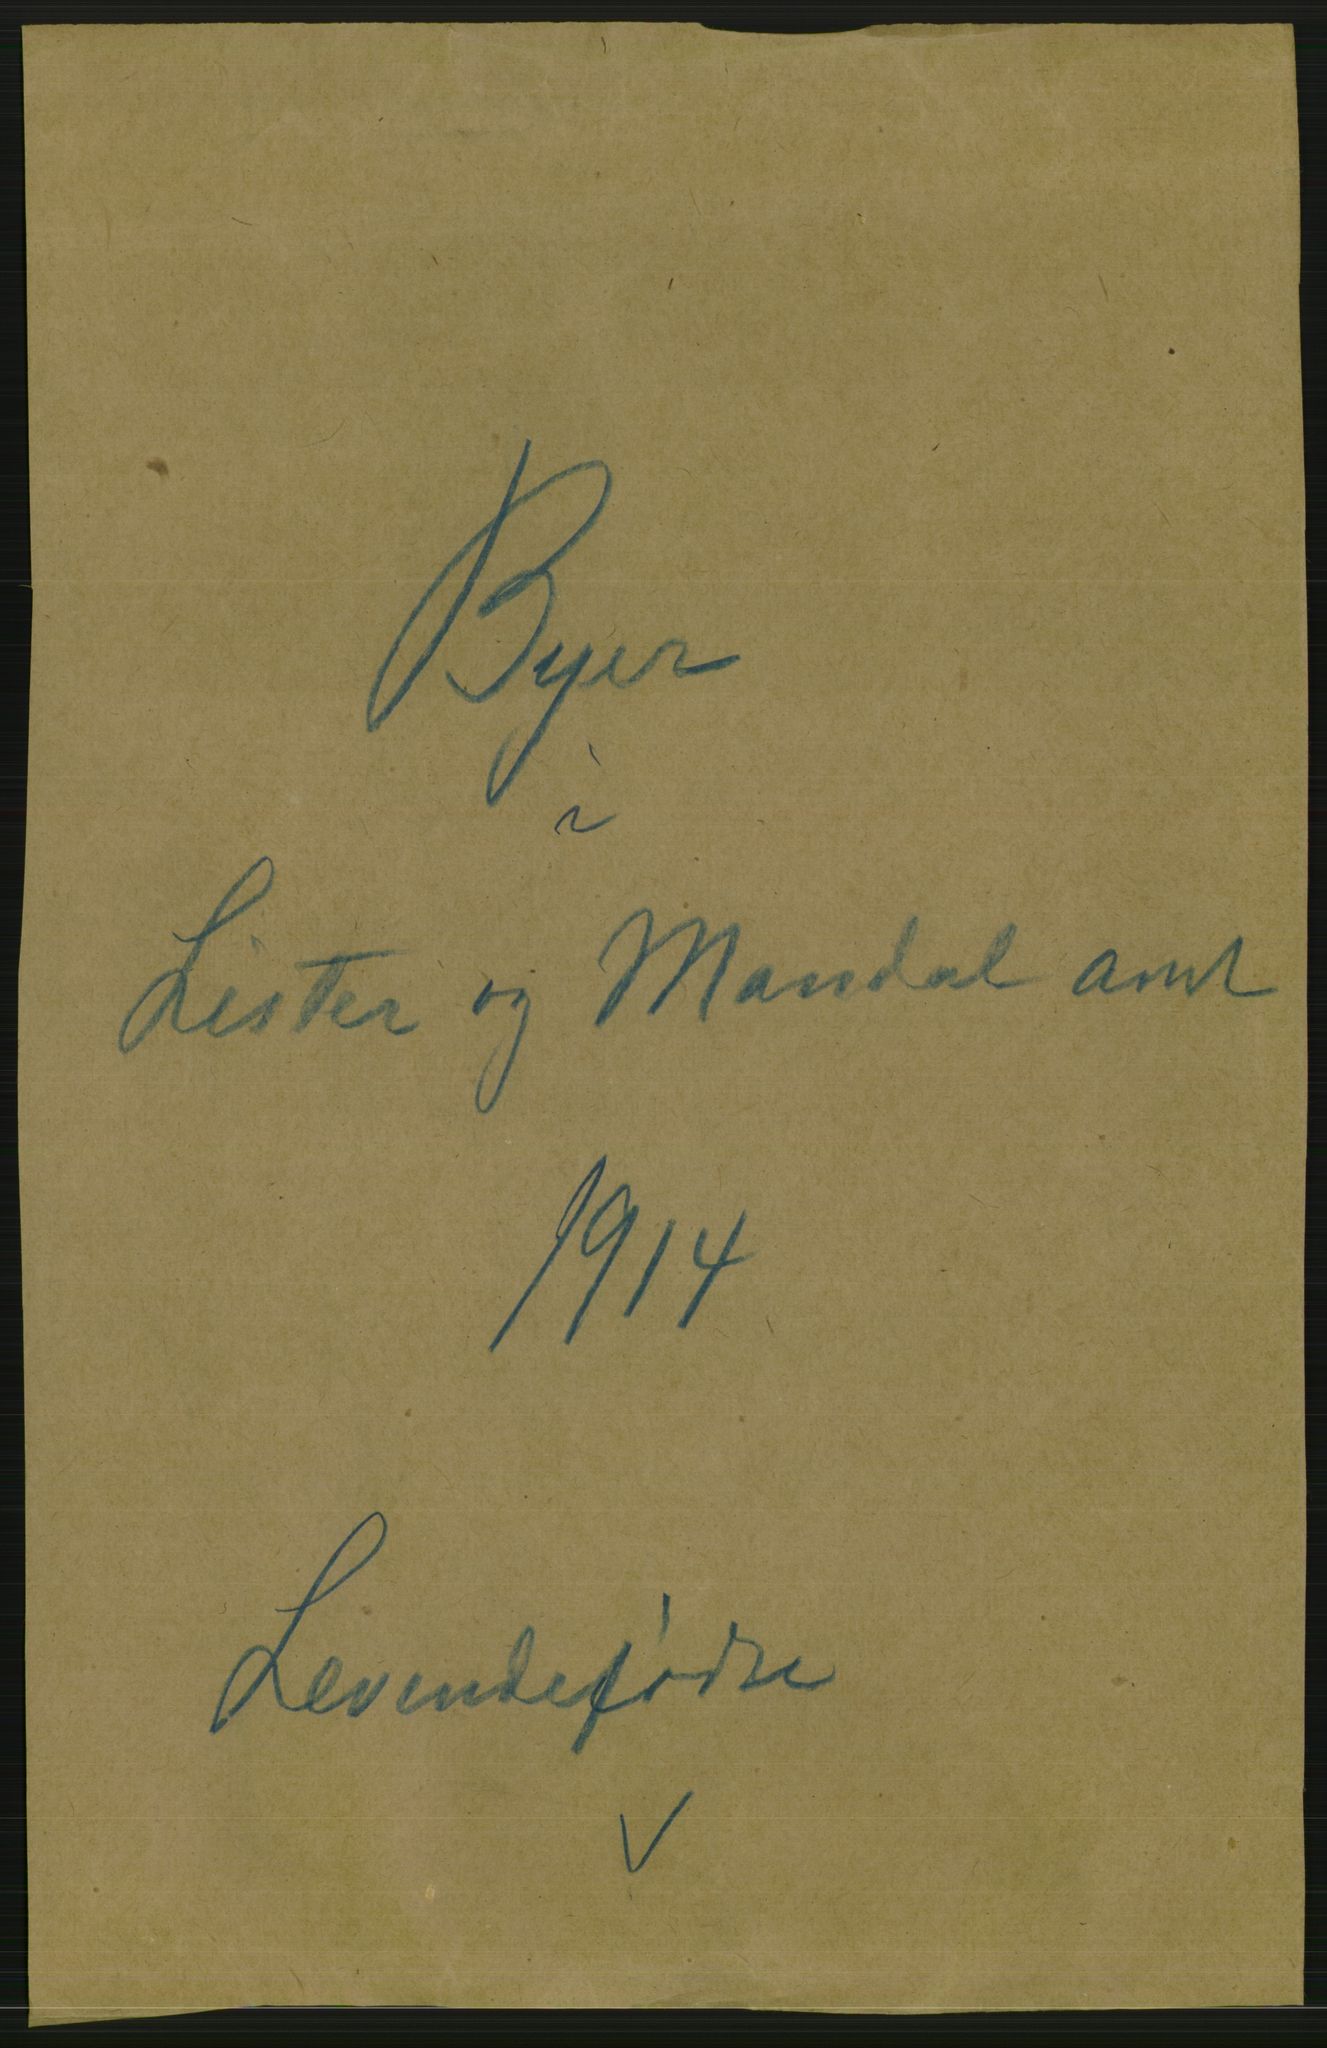 Byer
i
Lister og Mandal amt
1914
Levendefødte
V